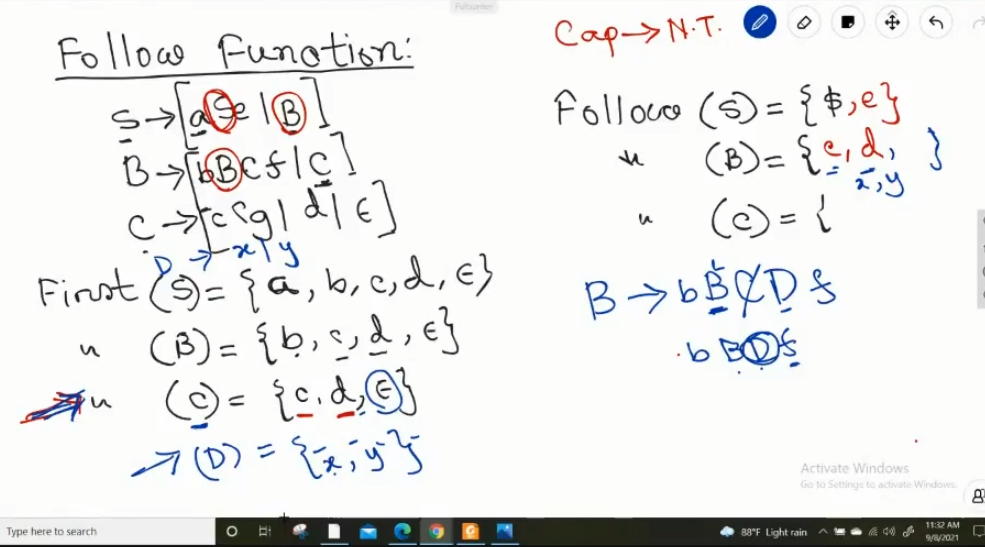 Follow Function:
S → [aSe | B]
B → [bBCf | C]
C → [cCg | d | ϵ]
D → x | y
First (S) = {a, b, c, d, ϵ}
" (B) = {b, c, d, ϵ}
" (C) = {c, d, ϵ}
→ (D) = {x, y}
Cap → N.T.
Follow (S) = {$, e}
" (B) = {c, d, }
x, y
" (C) = {
B → bBCDf
bBDf
Activate Windows
Go to Settings to activate Windows.
Type here to search
88°F Light rain
11:32 AM
9/8/2021